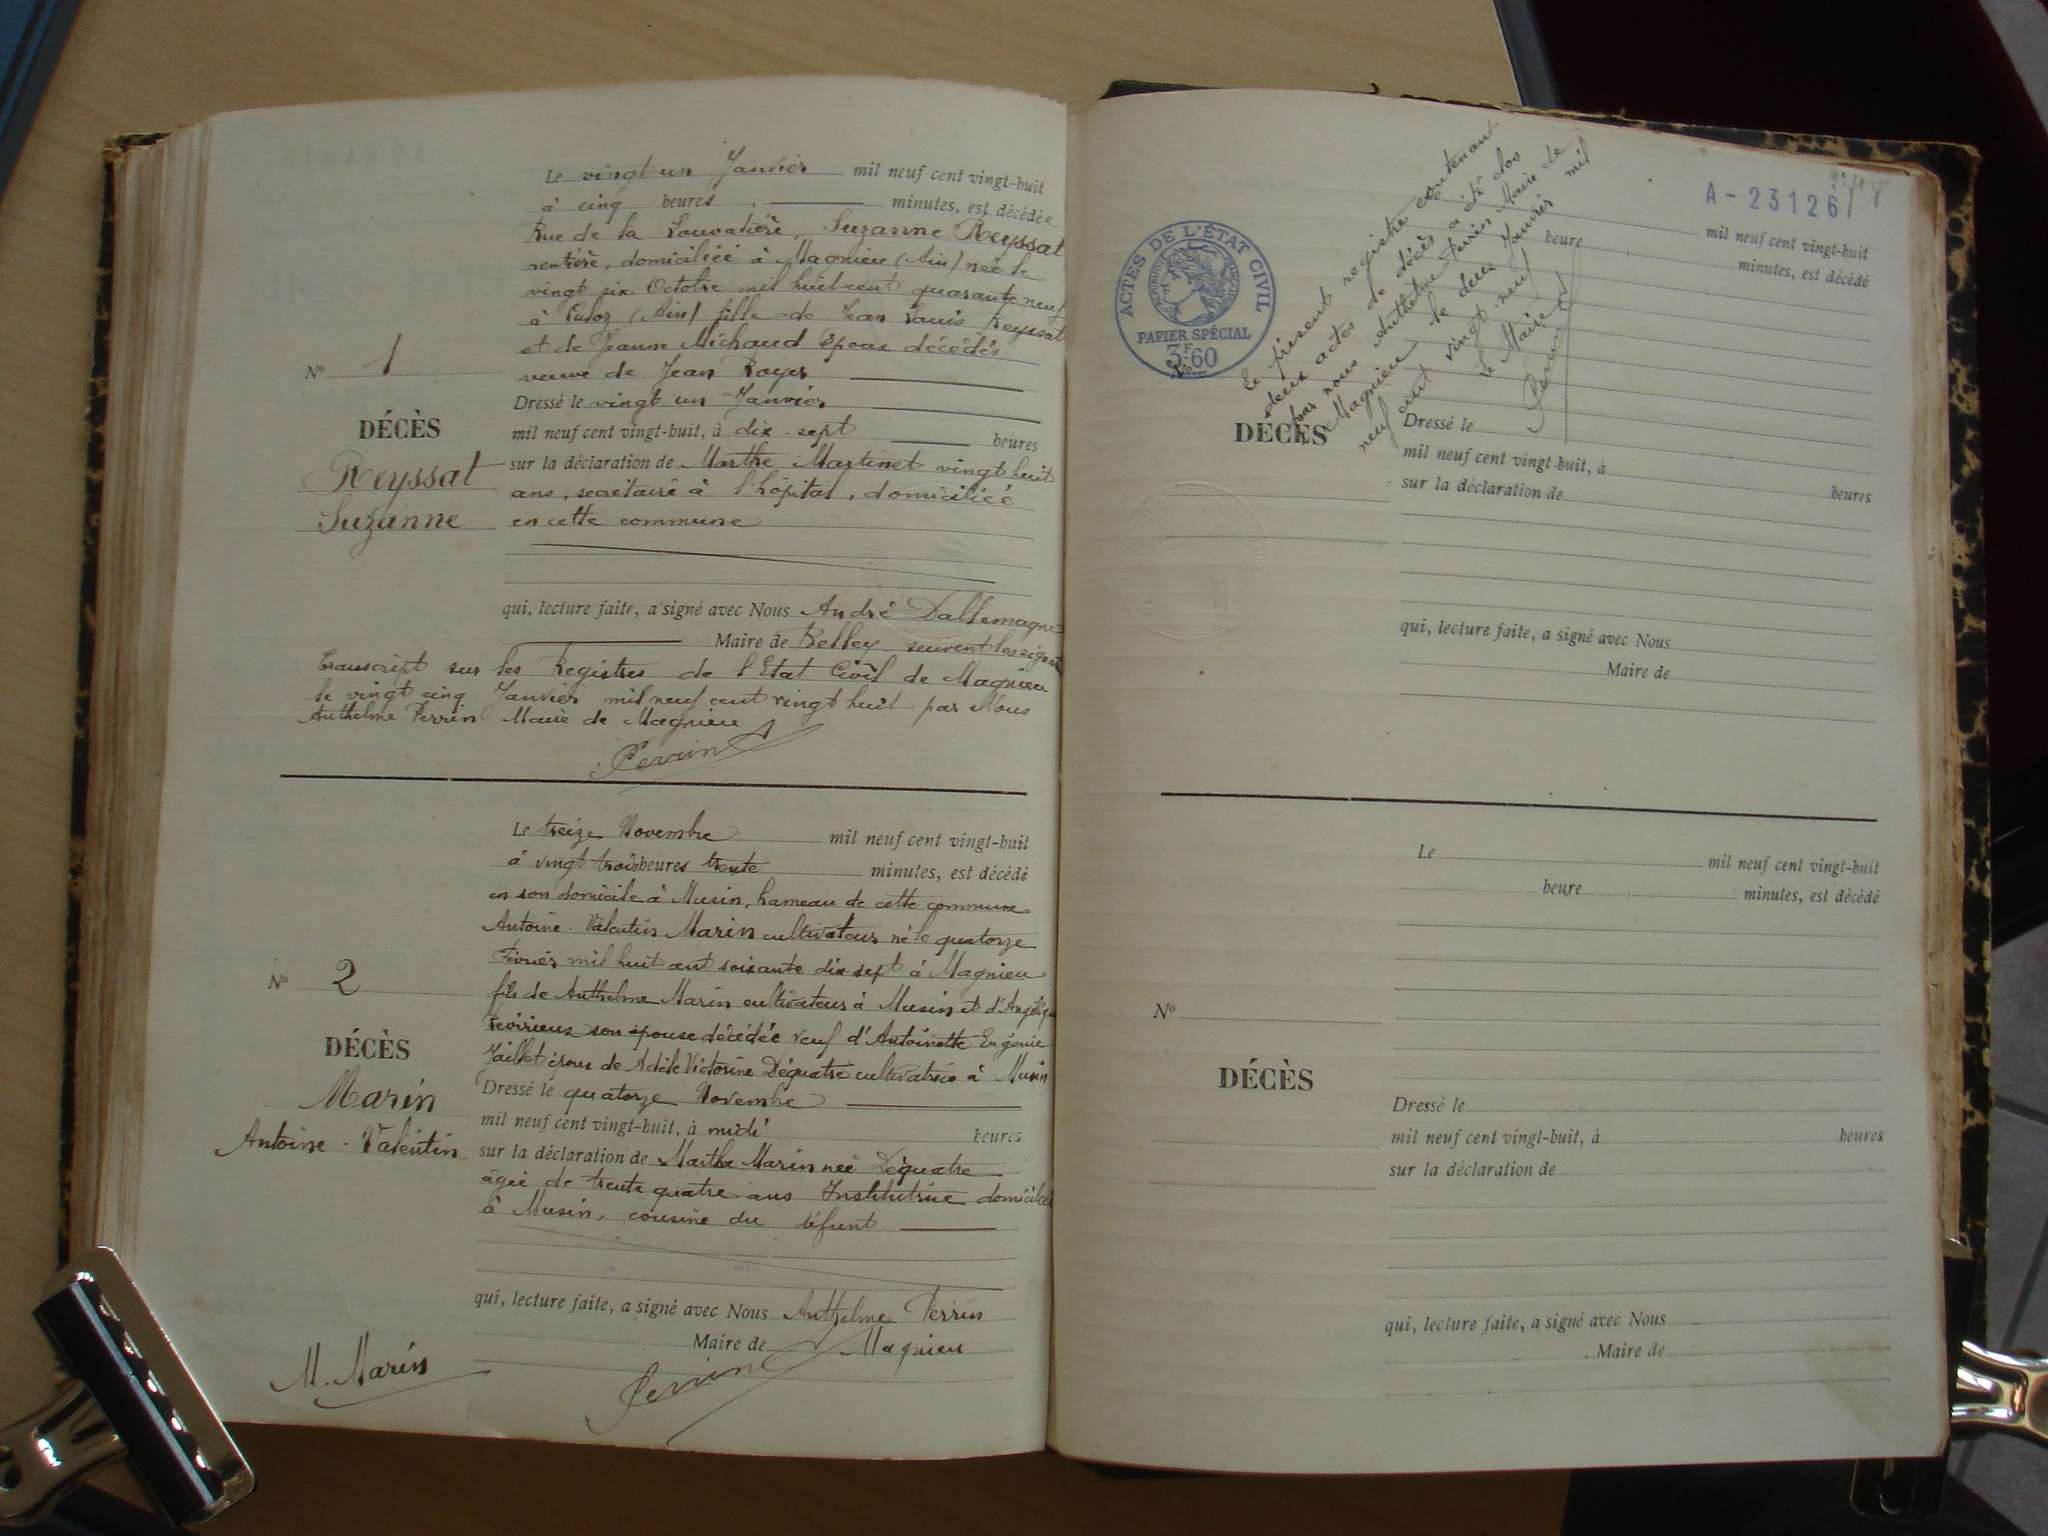 Le vingt un Janvier mil neuf cent vingt-huit
à cinq heures, minutes, est décédée
Rue de la Louvatière, Suzanne Reyssat
rentière, domiciliée à Magnieu (Ain) née le
vingt six Octobre mil huit cent quarante neuf
à Culoz (Ain) fille de Jean Louis Reyssat
et de Jeanne Michaud époux décédés
veuve de Jean Royer
Nº 1
DÉCÈS
Reyssat
Suzanne
Dressé le vingt un Janvier
mil neuf cent vingt-huit, à dix sept heures
sur la déclaration de Marthe Martinet vingt huit
ans, secrétaire à l'hôpital, domiciliée
en cette commune
qui, lecture faite, a signé avec Nous André Dallemagne
Maire de Belley suivent les
Transcript sur les Registres de l'Etat Civil de Magnieu
le vingt cinq Janvier mil neuf cent vingt huit par Nous
Anthelme Perrin Maire de Magnieu
Perrin
Le treize Novembre mil neuf cent vingt-huit
à vingt trois heures trente minutes, est décédé
en son domicile à Musin, hameau de cette commune
Antoine-Valentin Marin cultivateur né le quatorze
Février mil huit cent soixante dix sept à Magnieu
fils de Anthelme Marin cultivateur à Musin et d'Angélique
son épouse décédée veuf d'Antoinette Eugénie
Jaillet époux de Adèle Victorine Déquatre cultivatrice à Musin
Nº 2
DÉCÈS
Marin
Antoine-Valentin
Dressé le quatorze Novembre
mil neuf cent vingt-huit, à midi heures
sur la déclaration de Marthe Marin née Déquatre
âgée de trente quatre ans Institutrice domiciliée
à Musin, cousine du défunt
qui, lecture faite, a signé avec Nous Anthelme Perrin
Maire de Magnieu
M. Marin
Perrin
A - 23126
8
ACTES DE L'ÉTAT CIVIL
RÉPUBLIQUE FRANÇAISE
PAPIER SPÉCIAL
3F60
Le présent registre contenant
deux actes de décès a été clos
par nous Anthelme Perrin Maire de
Magnieu le deux Janvier mil
neuf cent vingt neuf
Le Maire
Perrin
mil neuf cent vingt-huit
heure minutes, est décédé
Nº
DÉCÈS
Dressé le
mil neuf cent vingt-huit, à
sur la déclaration de heures
qui, lecture faite, a signé avec Nous
Maire de
Le mil neuf cent vingt-huit
heure minutes, est décédé
Nº
DÉCÈS
Dressé le
mil neuf cent vingt-huit, à heures
sur la déclaration de
qui, lecture faite, a signé avec Nous
Maire de